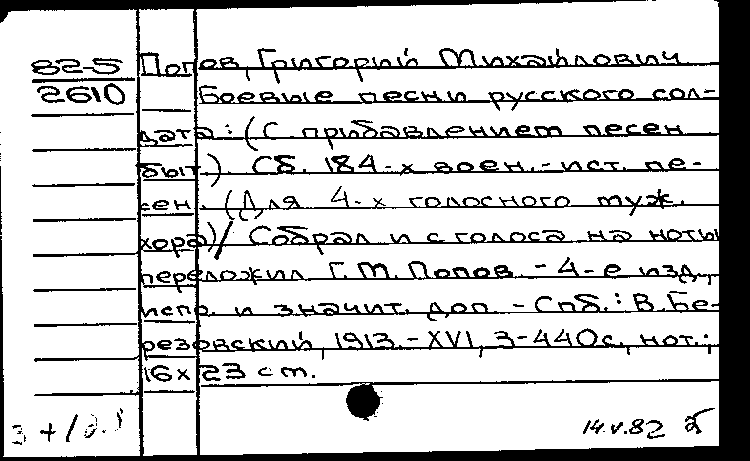 82-5 Попов, Григорий Михайлович
2610 Боевые песни русского сол-
дата: (С прибавлением песен
быт.). Сб. 184-х воен.-ист. пе-
сен. (Для 4-х голосного муж.
хора)/ Собрал и с голоса на ноты
переложил Г.М. Попов. - 4-е изд.,
испр. и значит. доп. - Спб.: В. Бе-
резовский, 1913. - XVI, 3-440с., нот.;
16х23 см.
14.V.82